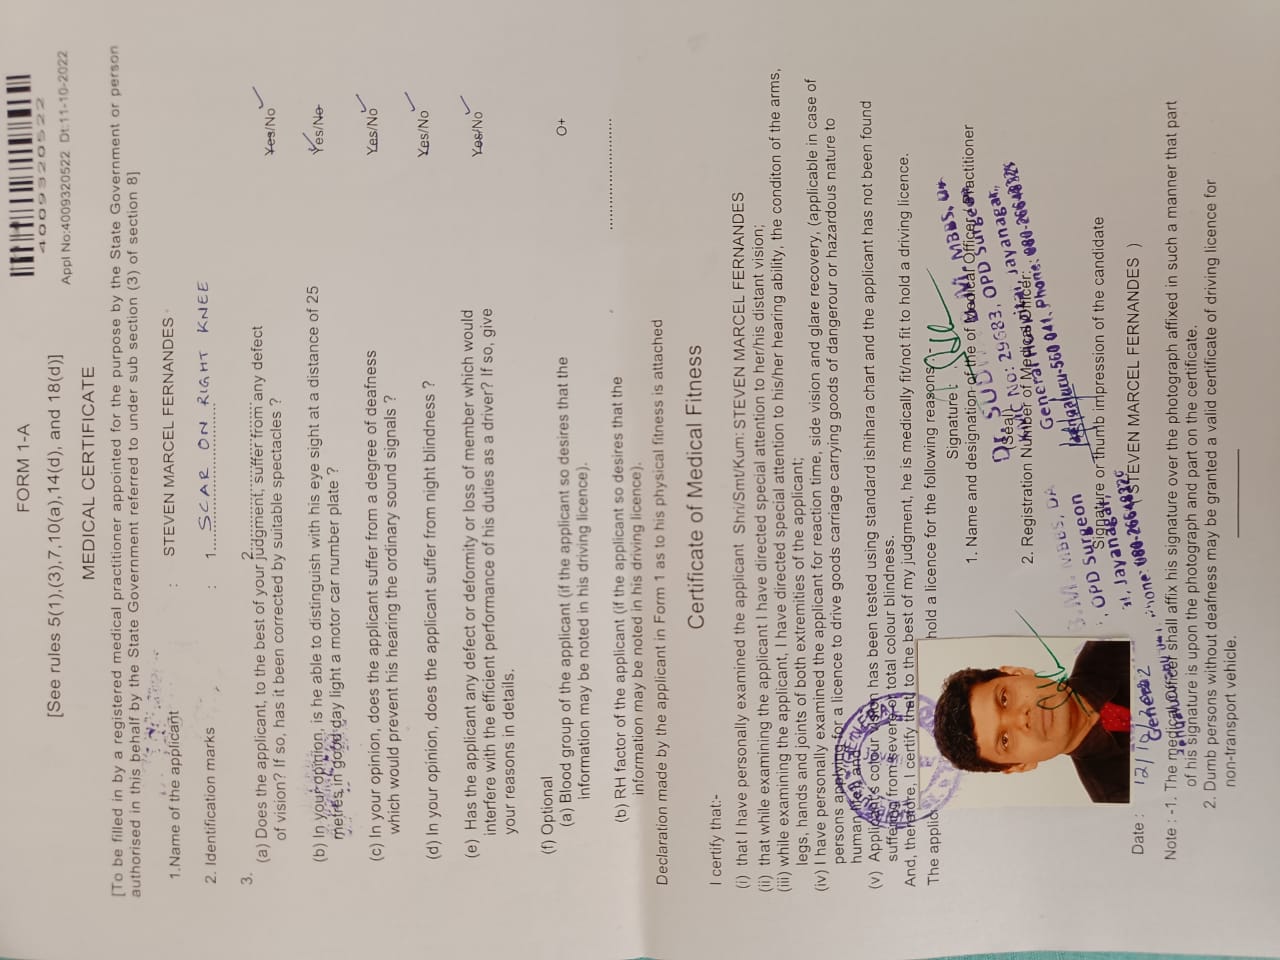 FORM 1-A
4009320522
[See rules 5(1),(3),7,10(a),14(d), and 18(d)]
Appl No:4009320522 Dt:11-10-2022
MEDICAL CERTIFICATE
[To be filled in by a registered medical practitioner appointed for the purpose by the State Government or person
authorised in this behalf by the State Government referred to under sub section (3) of section 8]
1.Name of the applicant : STEVEN MARCEL FERNANDES
2. Identification marks : 1. SCAR ON RIGHT KNEE
2
3.
(a) Does the applicant, to the best of your judgment, suffer from any defect
of vision? If so, has it been corrected by suitable spectacles ? Yes/No
(b) In your opinion, is he able to distinguish with his eye sight at a distance of 25
metres in good day light a motor car number plate ? Yes/No
(c) In your opinion, does the applicant suffer from a degree of deafness Yes/No
which would prevent his hearing the ordinary sound signals ?
(d) In your opinion, does the applicant suffer from night blindness ? Yes/No
(e) Has the applicant any defect or deformity or loss of member which would
interfere with the efficient performance of his duties as a driver? If so, give Yes/No
your reasons in details.
(f) Optional
(a) Blood group of the applicant (if the applicant so desires that the O+
information may be noted in his driving licence).
(b) RH factor of the applicant (if the applicant so desires that the
information may be noted in his driving licence).
Declaration made by the applicant in Form 1 as to his physical fitness is attached
Certificate of Medical Fitness
I certify that:-
(i) that I have personally examined the applicant Shri/Smt/Kum: STEVEN MARCEL FERNANDES
(ii) that while examining the applicant I have directed special attention to her/his distant vision;
(iii) while examining the applicant, I have directed special attention to his/her hearing ability, the conditon of the arms,
legs, hands and joints of both extremities of the applicant;
(iv) I have personally examined the applicant for reaction time, side vision and glare recovery, (applicable in case of
persons applying for a licence to drive goods carriage carrying goods of dangerour or hazardous nature to
human and
(v) Applicant's colour vision has been tested using standard ishihara chart and the applicant has not been found
suffering from severe or total colour blindness.
And, therefore, I certify that to the best of my judgment, he is medically fit/not fit to hold a driving licence.
The applic hold a licence for the following reasons :-
Signature :
1. Name and designation of the of Medical Officer / Practitioner
(Seal)
Dr. M. MBBS, DA
KMC No: 29683, OPD Surgeon
2. Registration Number of Medical Officer:
General Hospital, Jayanagar,
Bengaluru-560 041. Phone: 080-26648325
M. MBBS, DA
, OPD Surgeon
Jayanagar,
Signature or thumb impression of the candidate
Date : 12/10/2022 (STEVEN MARCEL FERNANDES )
Note : -1. The medical Officer shall affix his signature over the photograph affixed in such a manner that part
of his signature is upon the photograph and part on the certificate.
2. Dumb persons without deafness may be granted a valid certificate of driving licence for
non-transport vehicle.